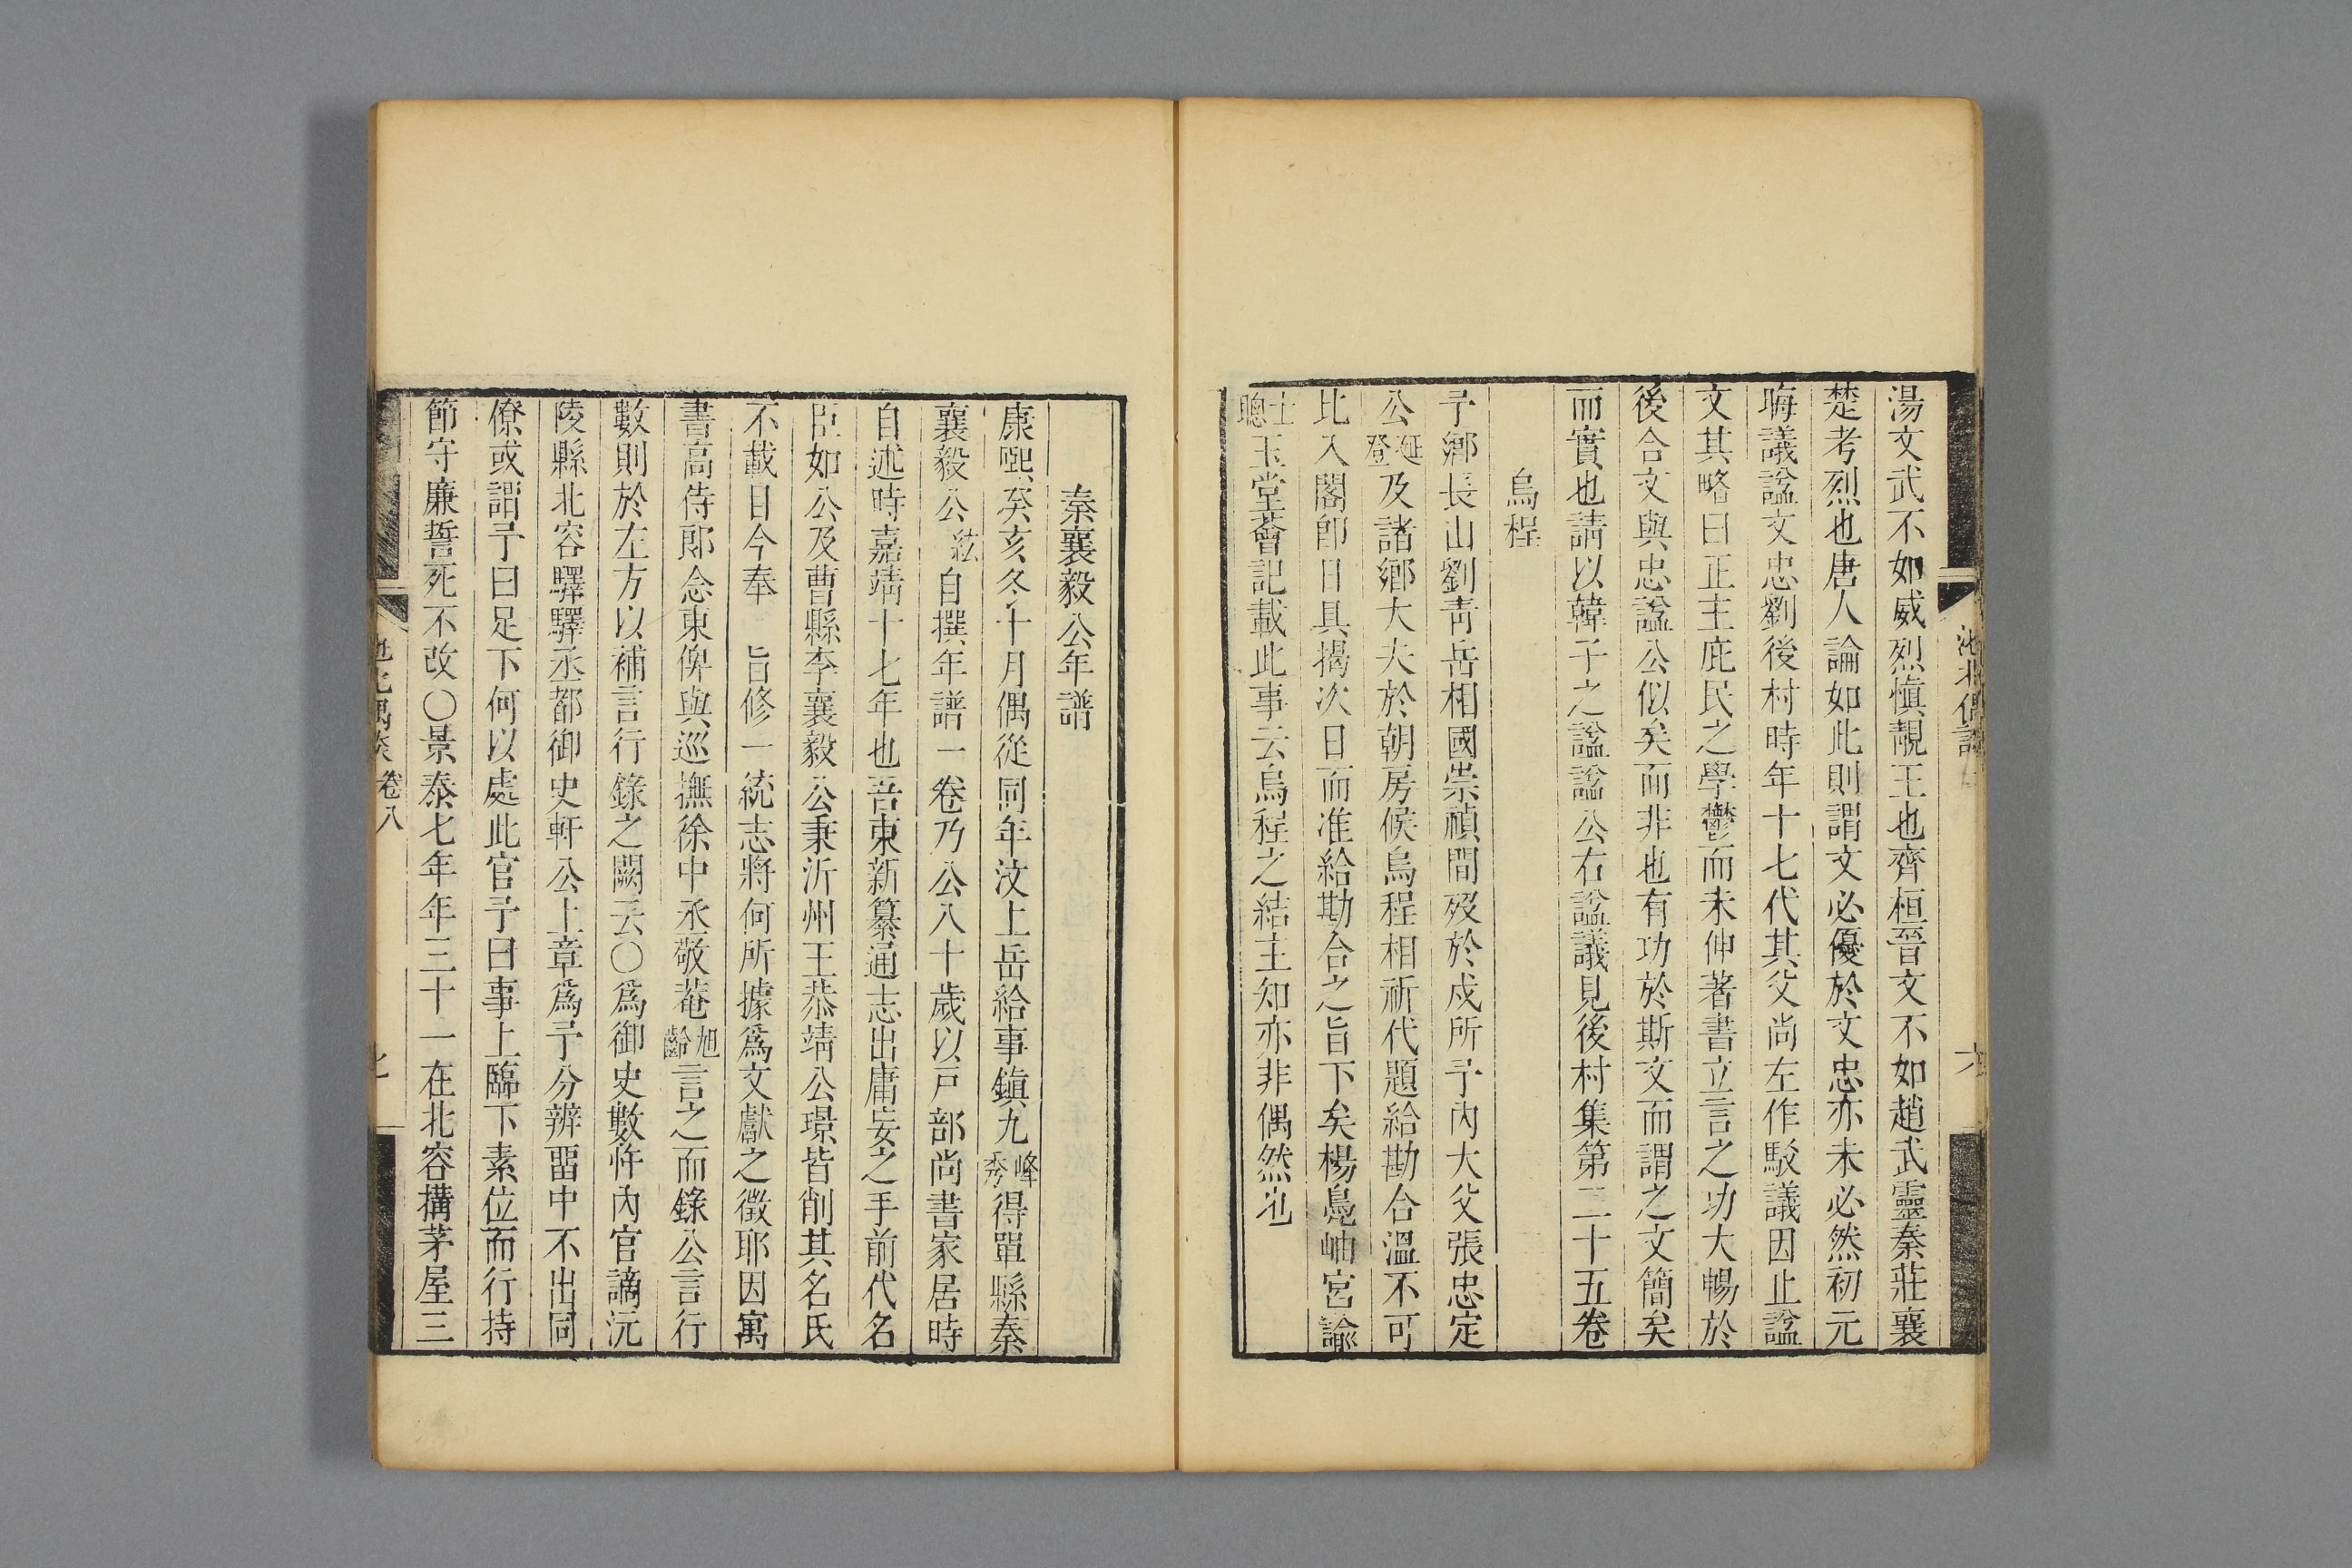 湯文武不如威烈愼靚王也齊桓晉文不如趙武靈秦莊襄
楚考烈也唐人論如此則謂文必優於文忠亦未必然初元
晦議諡文忠劉後村時年十七代其父尚左作駁議因止諡
文其略曰正主庇民之學鬱而未伸著書立言之功大暢於
後合文與忠諡公似矣而非也有功於斯文而謂之文簡矣
而實也請以韓子之諡諡公右諡議見後村集第二十五卷
烏程
予鄉長山劉靑岳相國崇禎間歿於戍所予內大父張忠定
公延登及諸鄉大夫於朝房候烏程相祈代題給勘合溫不可
比入閣卽日具揭次日而准給勘合之旨下矣楊鳧岫宮諭
士聰玉堂薈記載此事云烏程之結主知亦非偶然也
秦襄毅公年譜
康熙癸亥冬十月偶從同年汶上岳給事鎭九峰秀得單縣秦
襄毅公紘自撰年譜一卷乃公八十歲以戸部尚書家居時
自述時嘉靖十七年也吾東新纂通志出庸妄之手前代名
臣如公及曹縣李襄毅公秉沂州王恭靖公璟皆削其名氏
不載目今奉 旨修一統志將何所據爲文獻之徵耶因寓
書高侍郎念東俾與巡撫徐中丞敬菴旭齡言之而錄公言行
數則於左方以補言行錄之闕云○爲御史數忤內官謫沅
陵縣北容驛驛丞都御史軒公上章爲予分辨畱中不出同
僚或謂予曰足下何以處此官予曰事上臨下素位而行持
節守廉誓死不改○景泰七年年三十一在北容搆茅屋三
池北偶談
卷八